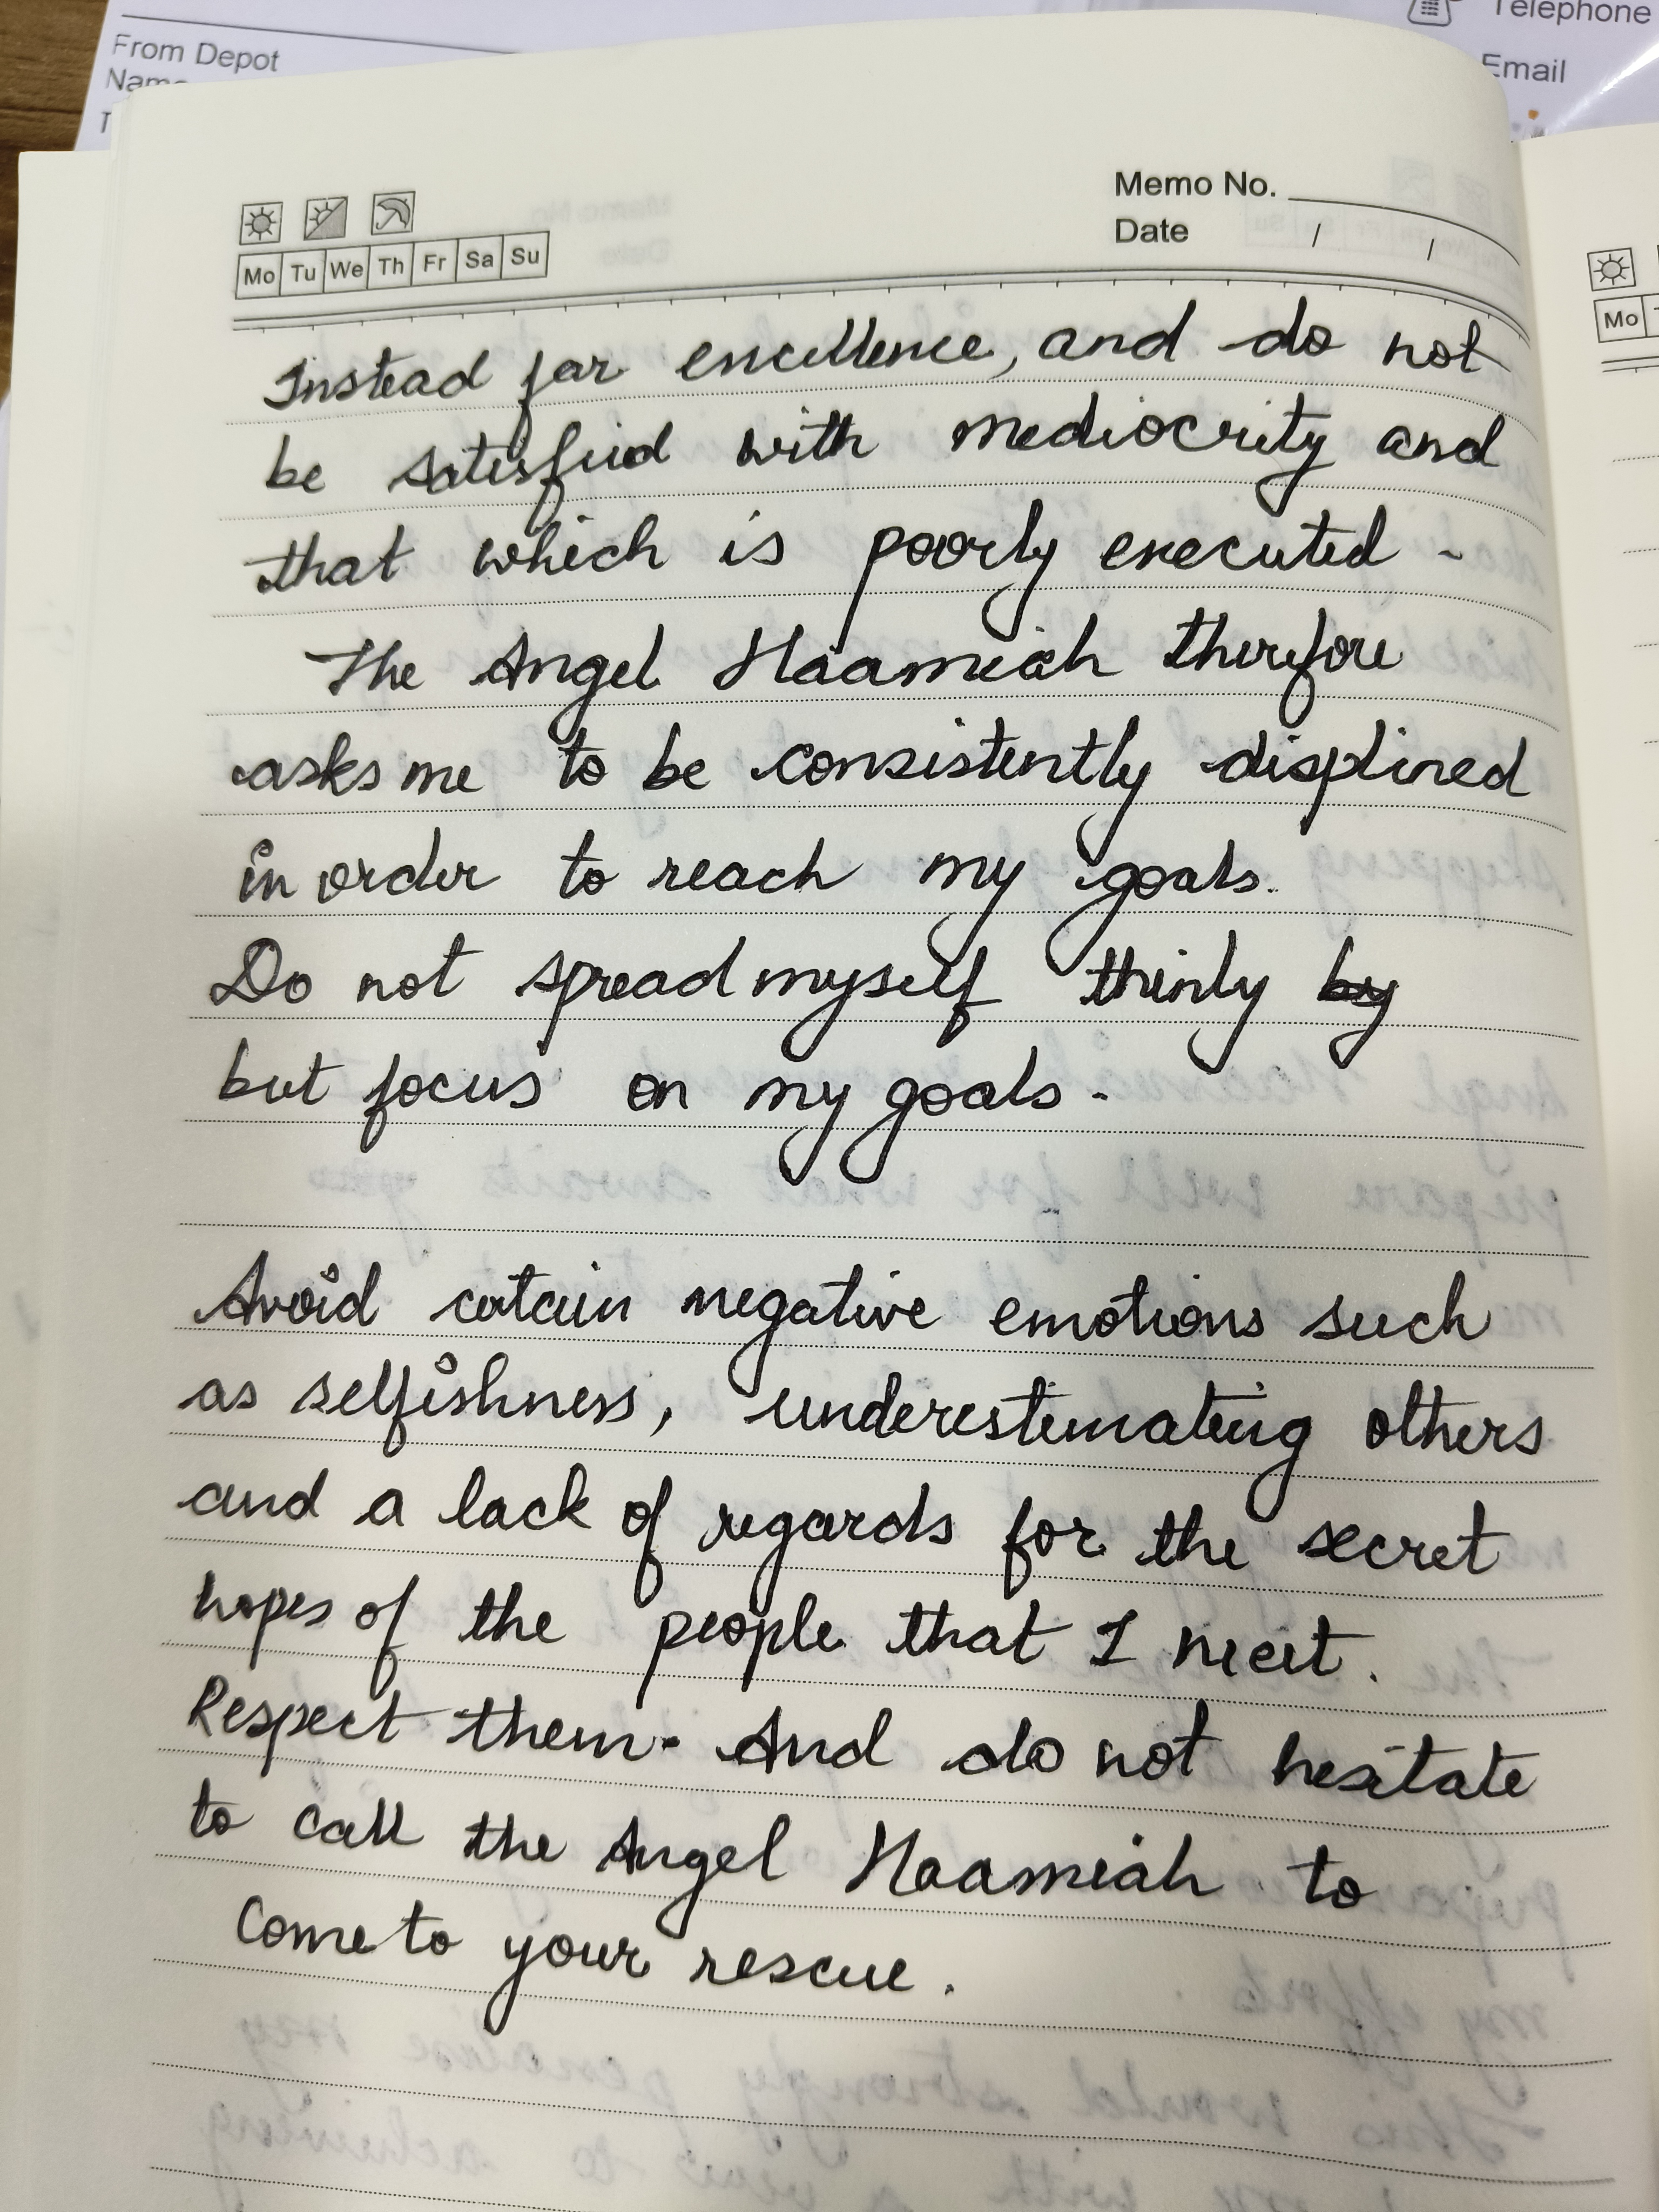 From Depot
Telephone
Email
Memo No.
Date / /
Mo Tu We Th Fr Sa Su
Mo
Instead for excellence, and do not
be satisfied with mediocrity and
that which is poorly executed -
The Angel Haamiah therefore
asks me to be consistently displined
in order to reach my goals.
Do not spread myself thinly by
but focus on my goals.
Avoid certain negative emotions such
as selfishness, underestimating others
and a lack of regards for the secret
hopes of the people that I meet.
Respect them. And do not hesitate
to call the Angel Haamiah to
Come to your rescue.